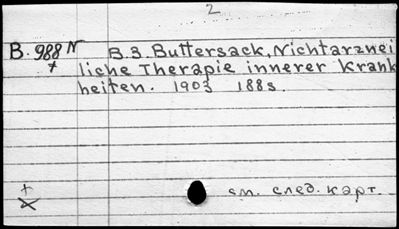 2
B. 988 N B. 3. Buttersack, Nichtarznei
liche Therapie innerer Krank
heiten. 1903 188s.
см. след. карт.